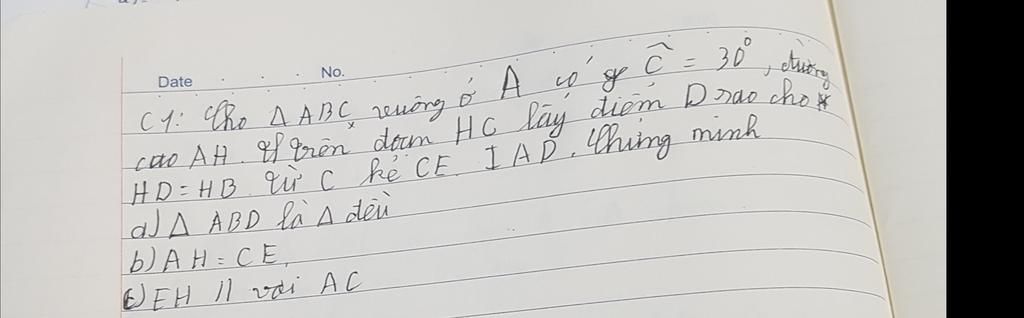 Date No.
C1: Cho Δ ABC vuông ở A có góc Ĉ = 30°, đường
cao AH. trên đoạn HC lấy điểm D sao cho
HD = HB. Từ C kẻ CE ⊥ AD. Chứng minh
a) Δ ABD là Δ đều
b) AH = CE.
c) EH // với AC